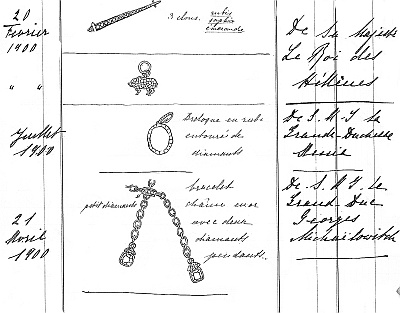 20
Février
1900
3 clous. rubis
saphir
émeraude
De Sa Majesté
Le Roi des
Hélènes
" "
Juillet
1900
entouré de
diamants
De S. M. I. la
Grande-Duchesse
21
Avril
1900
petit diamants
bracelet
chaîne en or
avec deux
diamants
pendants.
De S. A. I. Le
Grand-Duc
Georges
Michaïlowitch